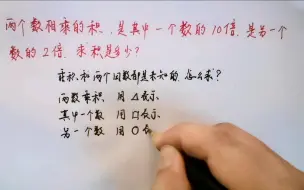 两个数相乘的积,是其中一个数的10倍,是另一个
数的2倍,求积是多少?
乘积和两个因数都是未知的,怎么求?
两数乘积 用△表示
其中一个数 用□表示
另一个数 用○